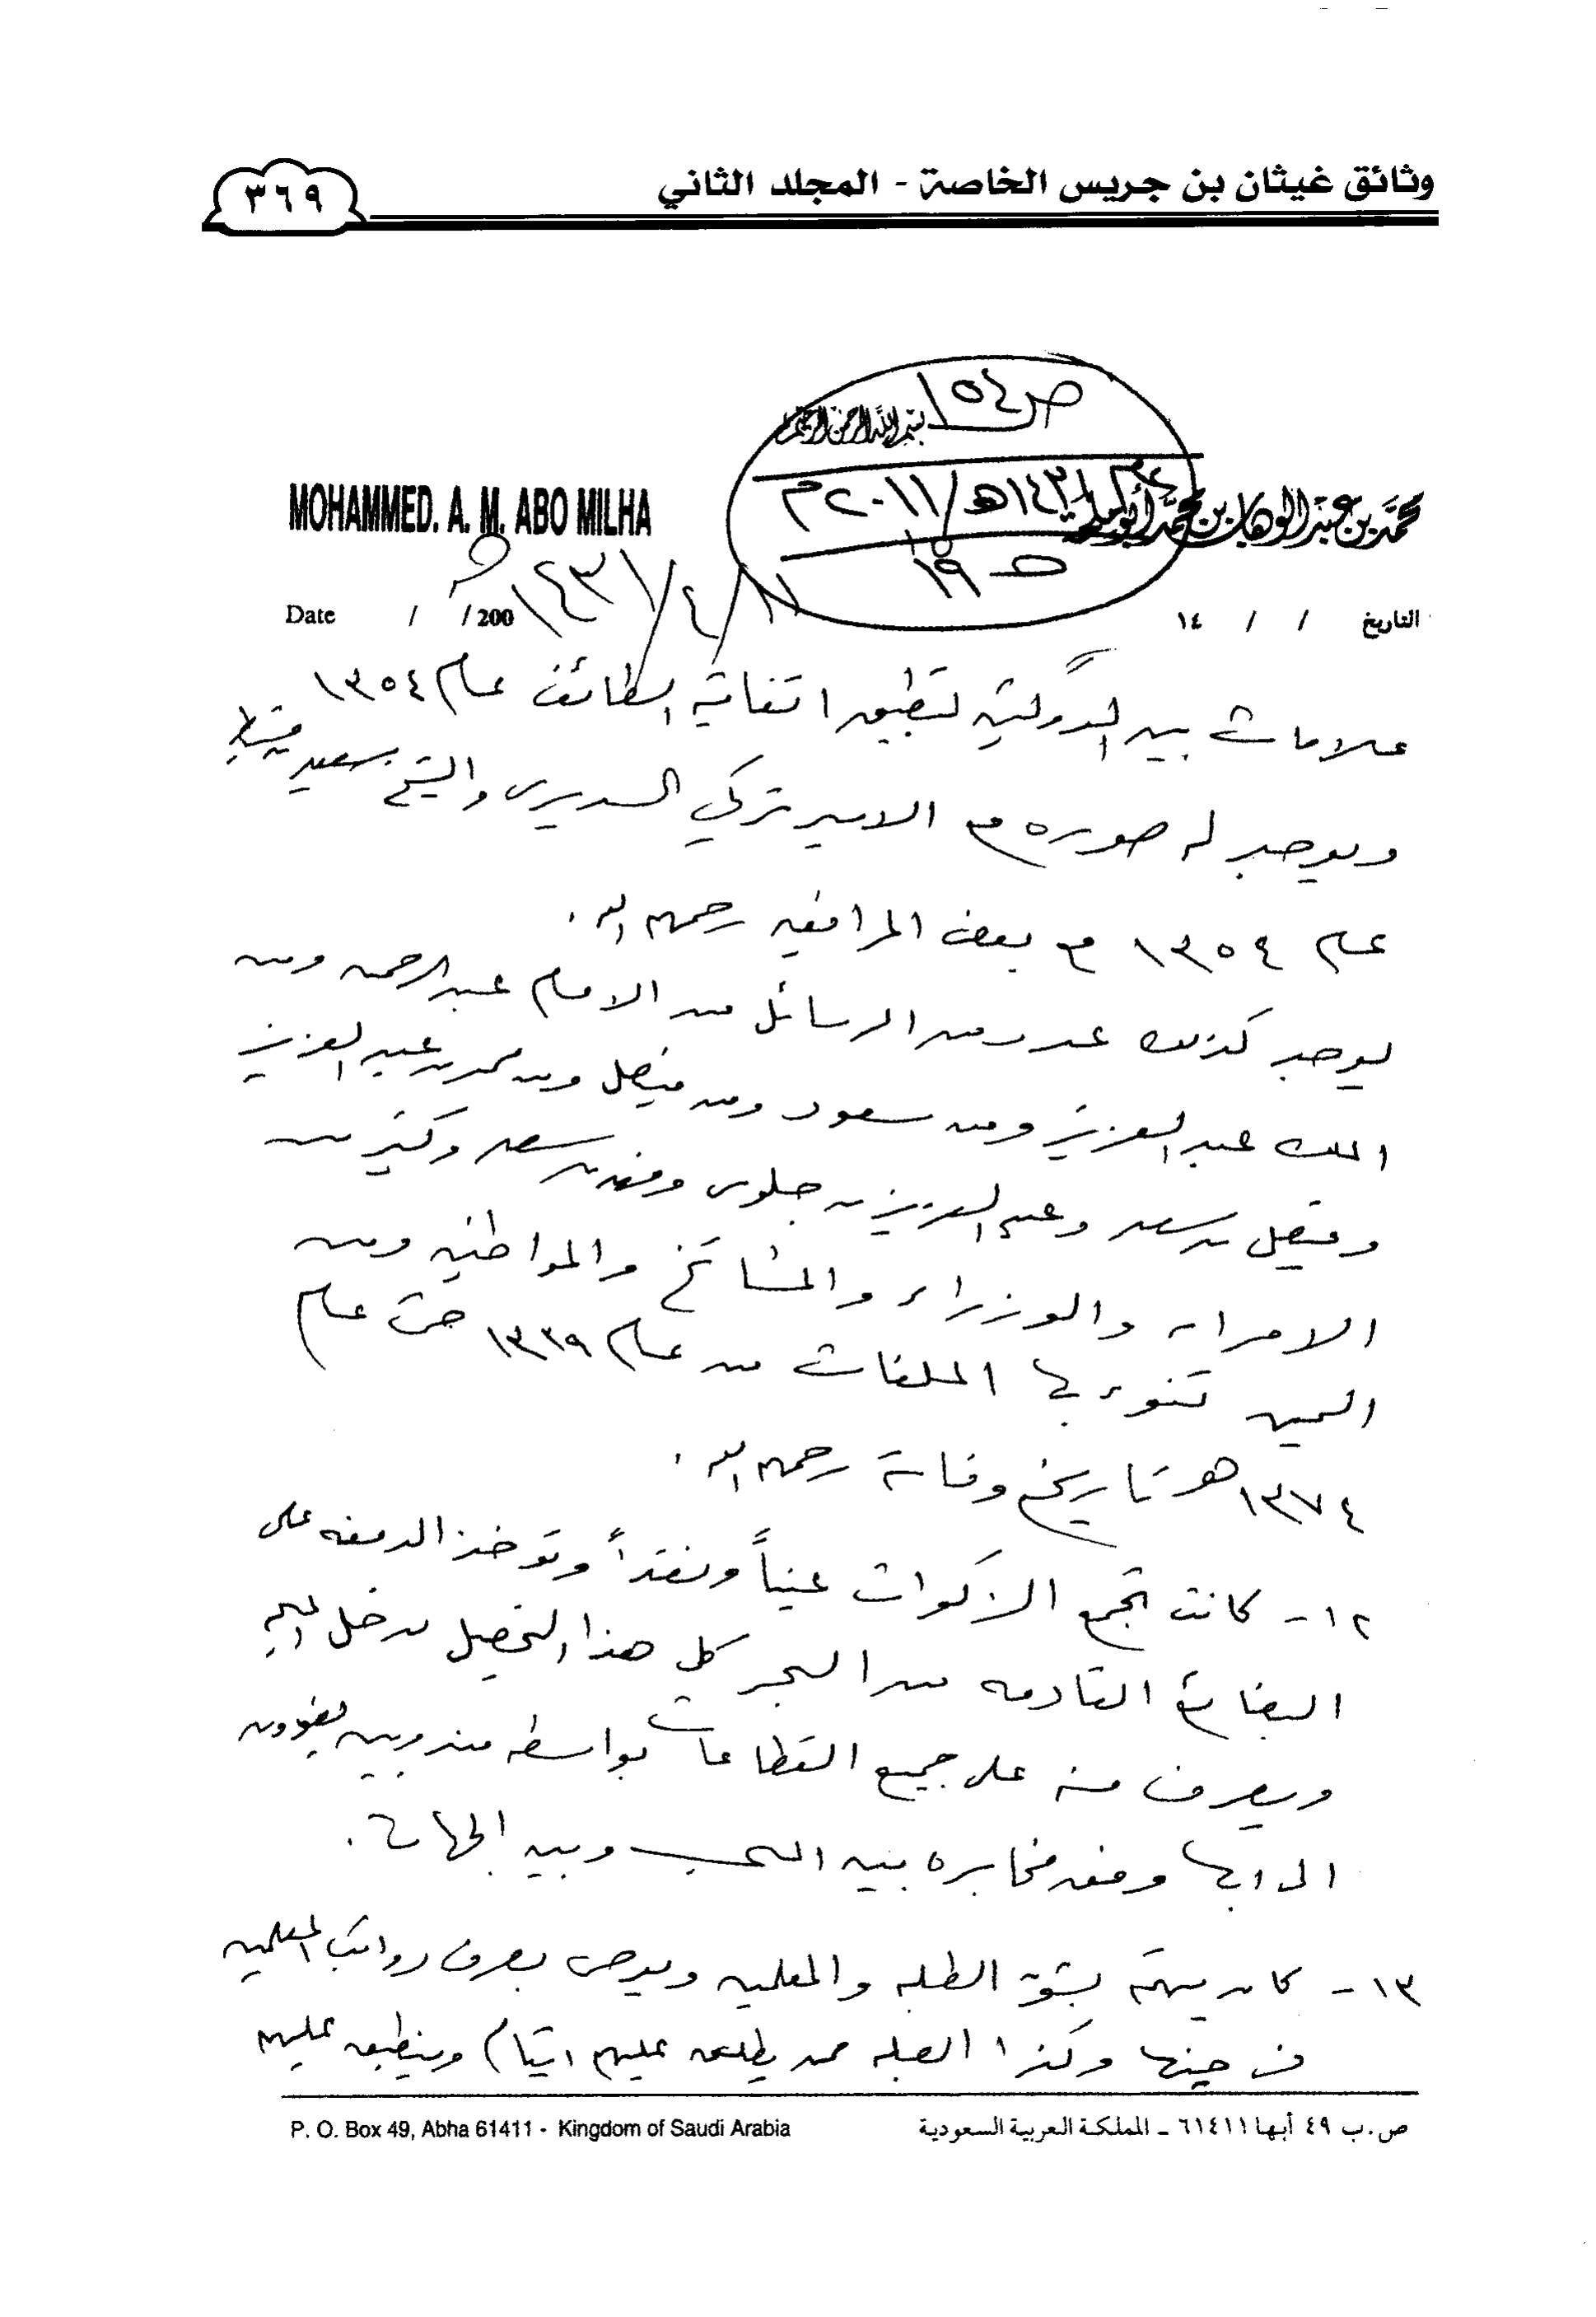 وثائق غيثان بن جريس الخاصة - المجلد الثاني
٣٦٩
ص١٥٤
بسم الله الرحمن الرحيم
MOHAMMED. A. M. ABO MILHA
محمد بن عبد الوهاب بن محمد أبو ملحة
١٤٣٢هـ/٢٠١١م
ص ١٩
Date / / 200
١٤٣١/٤/١١
التاريخ / / ١٤
علامات بين الدولتين لتطبيق اتفاقية الطائف عام ١٣٥٤
ويوجد له صوره مع الامير تركي السديري والشيخ سعيد مشيط
عام ١٣٥٤ مع بعض المرافقين رحمهم الله .
يوجد كذلك عدد من الرسائل من الامام عبد الرحمن ومن
الملك عبد العزيز ومن سعود ومن فيصل ومن محمد بن عبد العزيز
وفيصل بن سعد وعبد العزيز بن جلوي وفهد بن سعد وكثير من
الامراء والوزراء والمشائخ والمواطنين ومن
اليمن تنوء بها الملفات من عام ١٣٣٩ حتى عام
١٣٧٤هـ تاريخ وفاته رحمه الله .
١٢- كانت تجمع الزكوات عيناً ونقداً وتوخذ الدمغه على
البضائع القادمه من البحر كل هذا التحصيل يدخل
ويصرف منه على جميع القطاعات بواسطه مندوبين يفدون
الى ابها وفق مخابره بينه وبين الجهات .
١٣- كان يهتم بشئون الطلبه والمعلمين ويوصي بصرف رواتب المعلمين
في حينها وكذا الطلبه ممن يطلق عليهم ايتام وينطبق عليهم
P. O. Box 49, Abha 61411 - Kingdom of Saudi Arabia
ص.ب ٤٩ أبها ٦١٤١١ - المملكة العربية السعودية